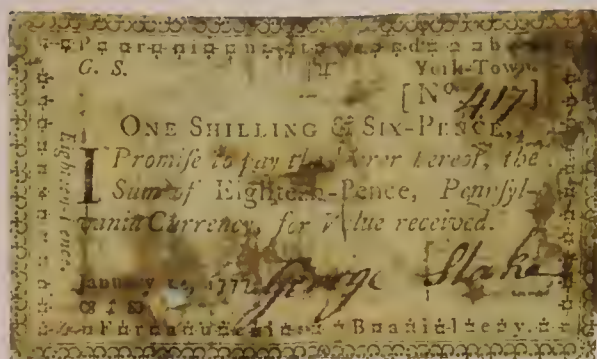 G. S. York-Town
[No 417]
ONE SHILLING & SIX-PENCE,
I Promiſe to pay the Bearer hereof, the
Sum of Eighteen-Pence, Pennſyl-
vania Currency, for Value received.
January 1777
George Stake
Eighteen Pence.